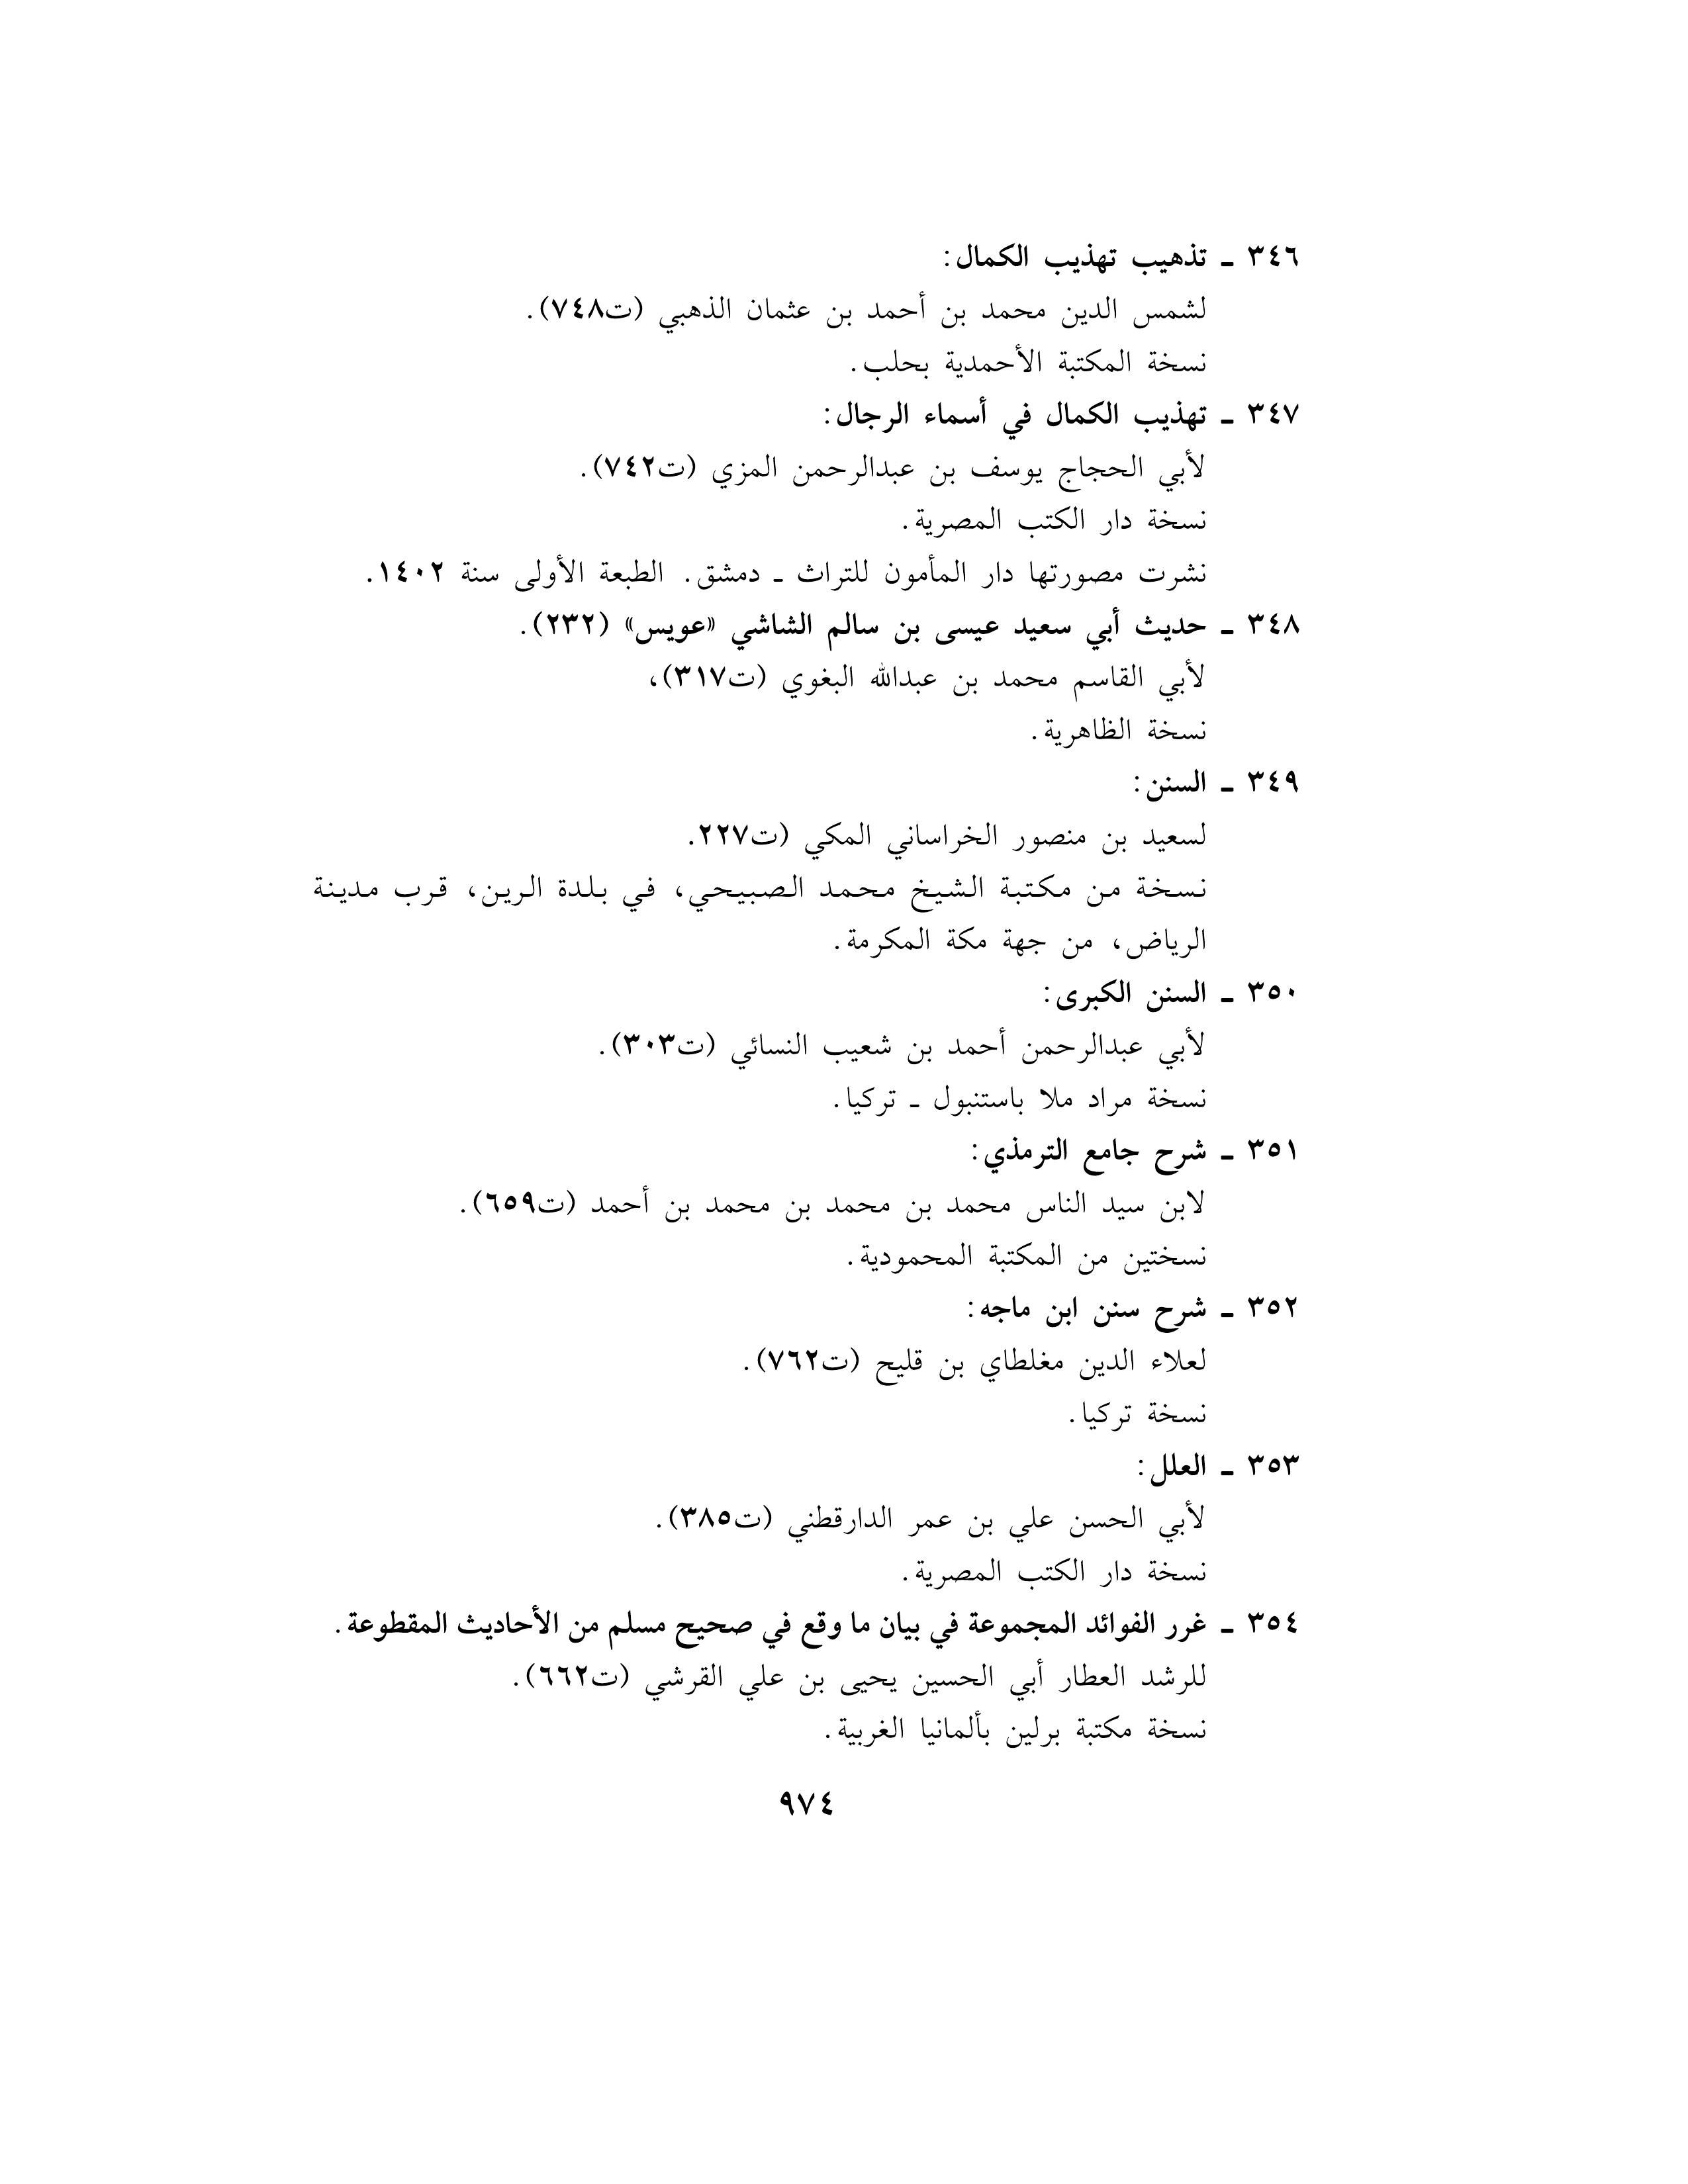 ٣٤٦ ـ تذهيب تهذيب الكمال:
لشمس الدين محمد بن أحمد بن عثمان الذهبي (ت٧٤٨).
نسخة المكتبة الأحمدية بحلب.
٣٤٧ ـ تهذيب الكمال في أسماء الرجال:
لأبي الحجاج يوسف بن عبدالرحمن المزي (ت٧٤٢).
نسخة دار الكتب المصرية.
نشرت مصورتها دار المأمون للتراث ـ دمشق. الطبعة الأولى سنة ١٤٠٢.
٣٤٨ ـ حديث أبي سعيد عيسى بن سالم الشاشي «عويس» (٢٣٢).
لأبي القاسم محمد بن عبدالله البغوي (ت٣١٧)،
نسخة الظاهرية.
٣٤٩ ـ السنن:
لسعيد بن منصور الخراساني المكي (ت٢٢٧.
نسخة من مكتبة الشيخ محمد الصبيحي، في بلدة الرين، قرب مدينة
الرياض، من جهة مكة المكرمة.
٣٥٠ ـ السنن الكبرى:
لأبي عبدالرحمن أحمد بن شعيب النسائي (ت٣٠٣).
نسخة مراد ملا باستنبول ـ تركيا.
٣٥١ ـ شرح جامع الترمذي:
لابن سيد الناس محمد بن محمد بن محمد بن أحمد (ت٦٥٩).
نسختين من المكتبة المحمودية.
٣٥٢ ـ شرح سنن ابن ماجه:
لعلاء الدين مغلطاي بن قليح (ت٧٦٢).
نسخة تركيا.
٣٥٣ ـ العلل:
لأبي الحسن علي بن عمر الدارقطني (ت٣٨٥).
نسخة دار الكتب المصرية.
٣٥٤ ـ غرر الفوائد المجموعة في بيان ما وقع في صحيح مسلم من الأحاديث المقطوعة.
للرشد العطار أبي الحسين يحيى بن علي القرشي (ت٦٦٢).
نسخة مكتبة برلين بألمانيا الغربية.
٩٧٤